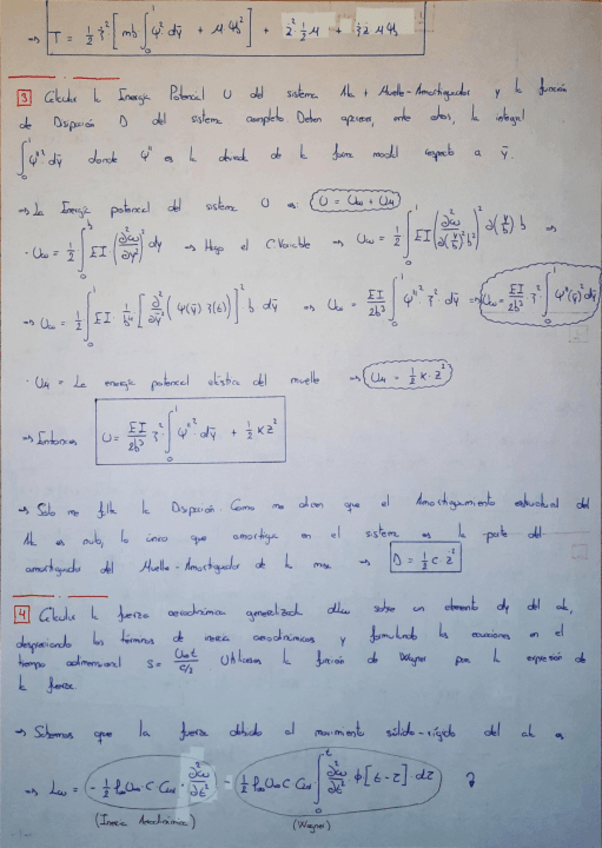 → T = 1/2 ż² [ mb ∫₀¹ Ψ² dȳ + μ Ψ² ] + ż² 1/2 μ + μ
3 Calcular la Energía Potencial U del sistema Ala + Muelle-Amortiguador y la función
de Disipación D del sistema completo Deben aparecer, entre otros, la integral
∫₀¹ Ψ''² dȳ donde Ψ'' es la derivada de la forma modal respecto a ȳ.
→ La Energía potencial del sistema U es: U = Uω + UM
· Uω = 1/2 ∫₀ᵇ EI (∂²ω/∂y²)² dy → Hago el C.Variable → Uω = 1/2 ∫₀¹ EI (∂²ω/∂(y/b)² b²)² ∂(y/b) b ⇒
→ Uω = 1/2 ∫₀¹ EI · 1/b⁴ [ ∂²/∂ȳ² ( Ψ(ȳ) ξ(t) ) ]² b dȳ → Uω = EI/2b³ ∫₀¹ Ψ''² · ξ² · dȳ → Uω = EI/2b³ · ξ² · ∫₀¹ Ψ''²(ȳ) dȳ
· UM = La energía potencial elástica del muelle → UM = 1/2 K · z²
→ Entonces U = EI/2b³ ξ² · ∫₀¹ Ψ''² · dȳ + 1/2 K z²
→ Solo me falta la Disipación. Como me dicen que el Amortiguamiento estructural del
Ala es nulo, lo único que amortigua en el sistema es la parte del
amortiguador del Muelle-Amortiguador de la masa → D = 1/2 c · ż²
4 Calcular la fuerza aerodinámica generalizada dLω sobre un elemento dy del ala,
despreciando los términos de inercia aerodinámicos y formulando las ecuaciones en el
tiempo adimensional S = U∞t / c/2. Utilizamos la función de Wagner por la expresión de
la fuerza.
→ Sabemos que la fuerza debido al movimiento sólido-rígido del ala es
→ Lω = - 1/2 ρ∞ U∞ C · ∂²ω/∂t² - 1/2 ρ∞ U∞ C ∫₀ᵗ ∂²ω/∂t² φ[t - τ] · dτ
(Inercia Aerodinámica) (Wagner)